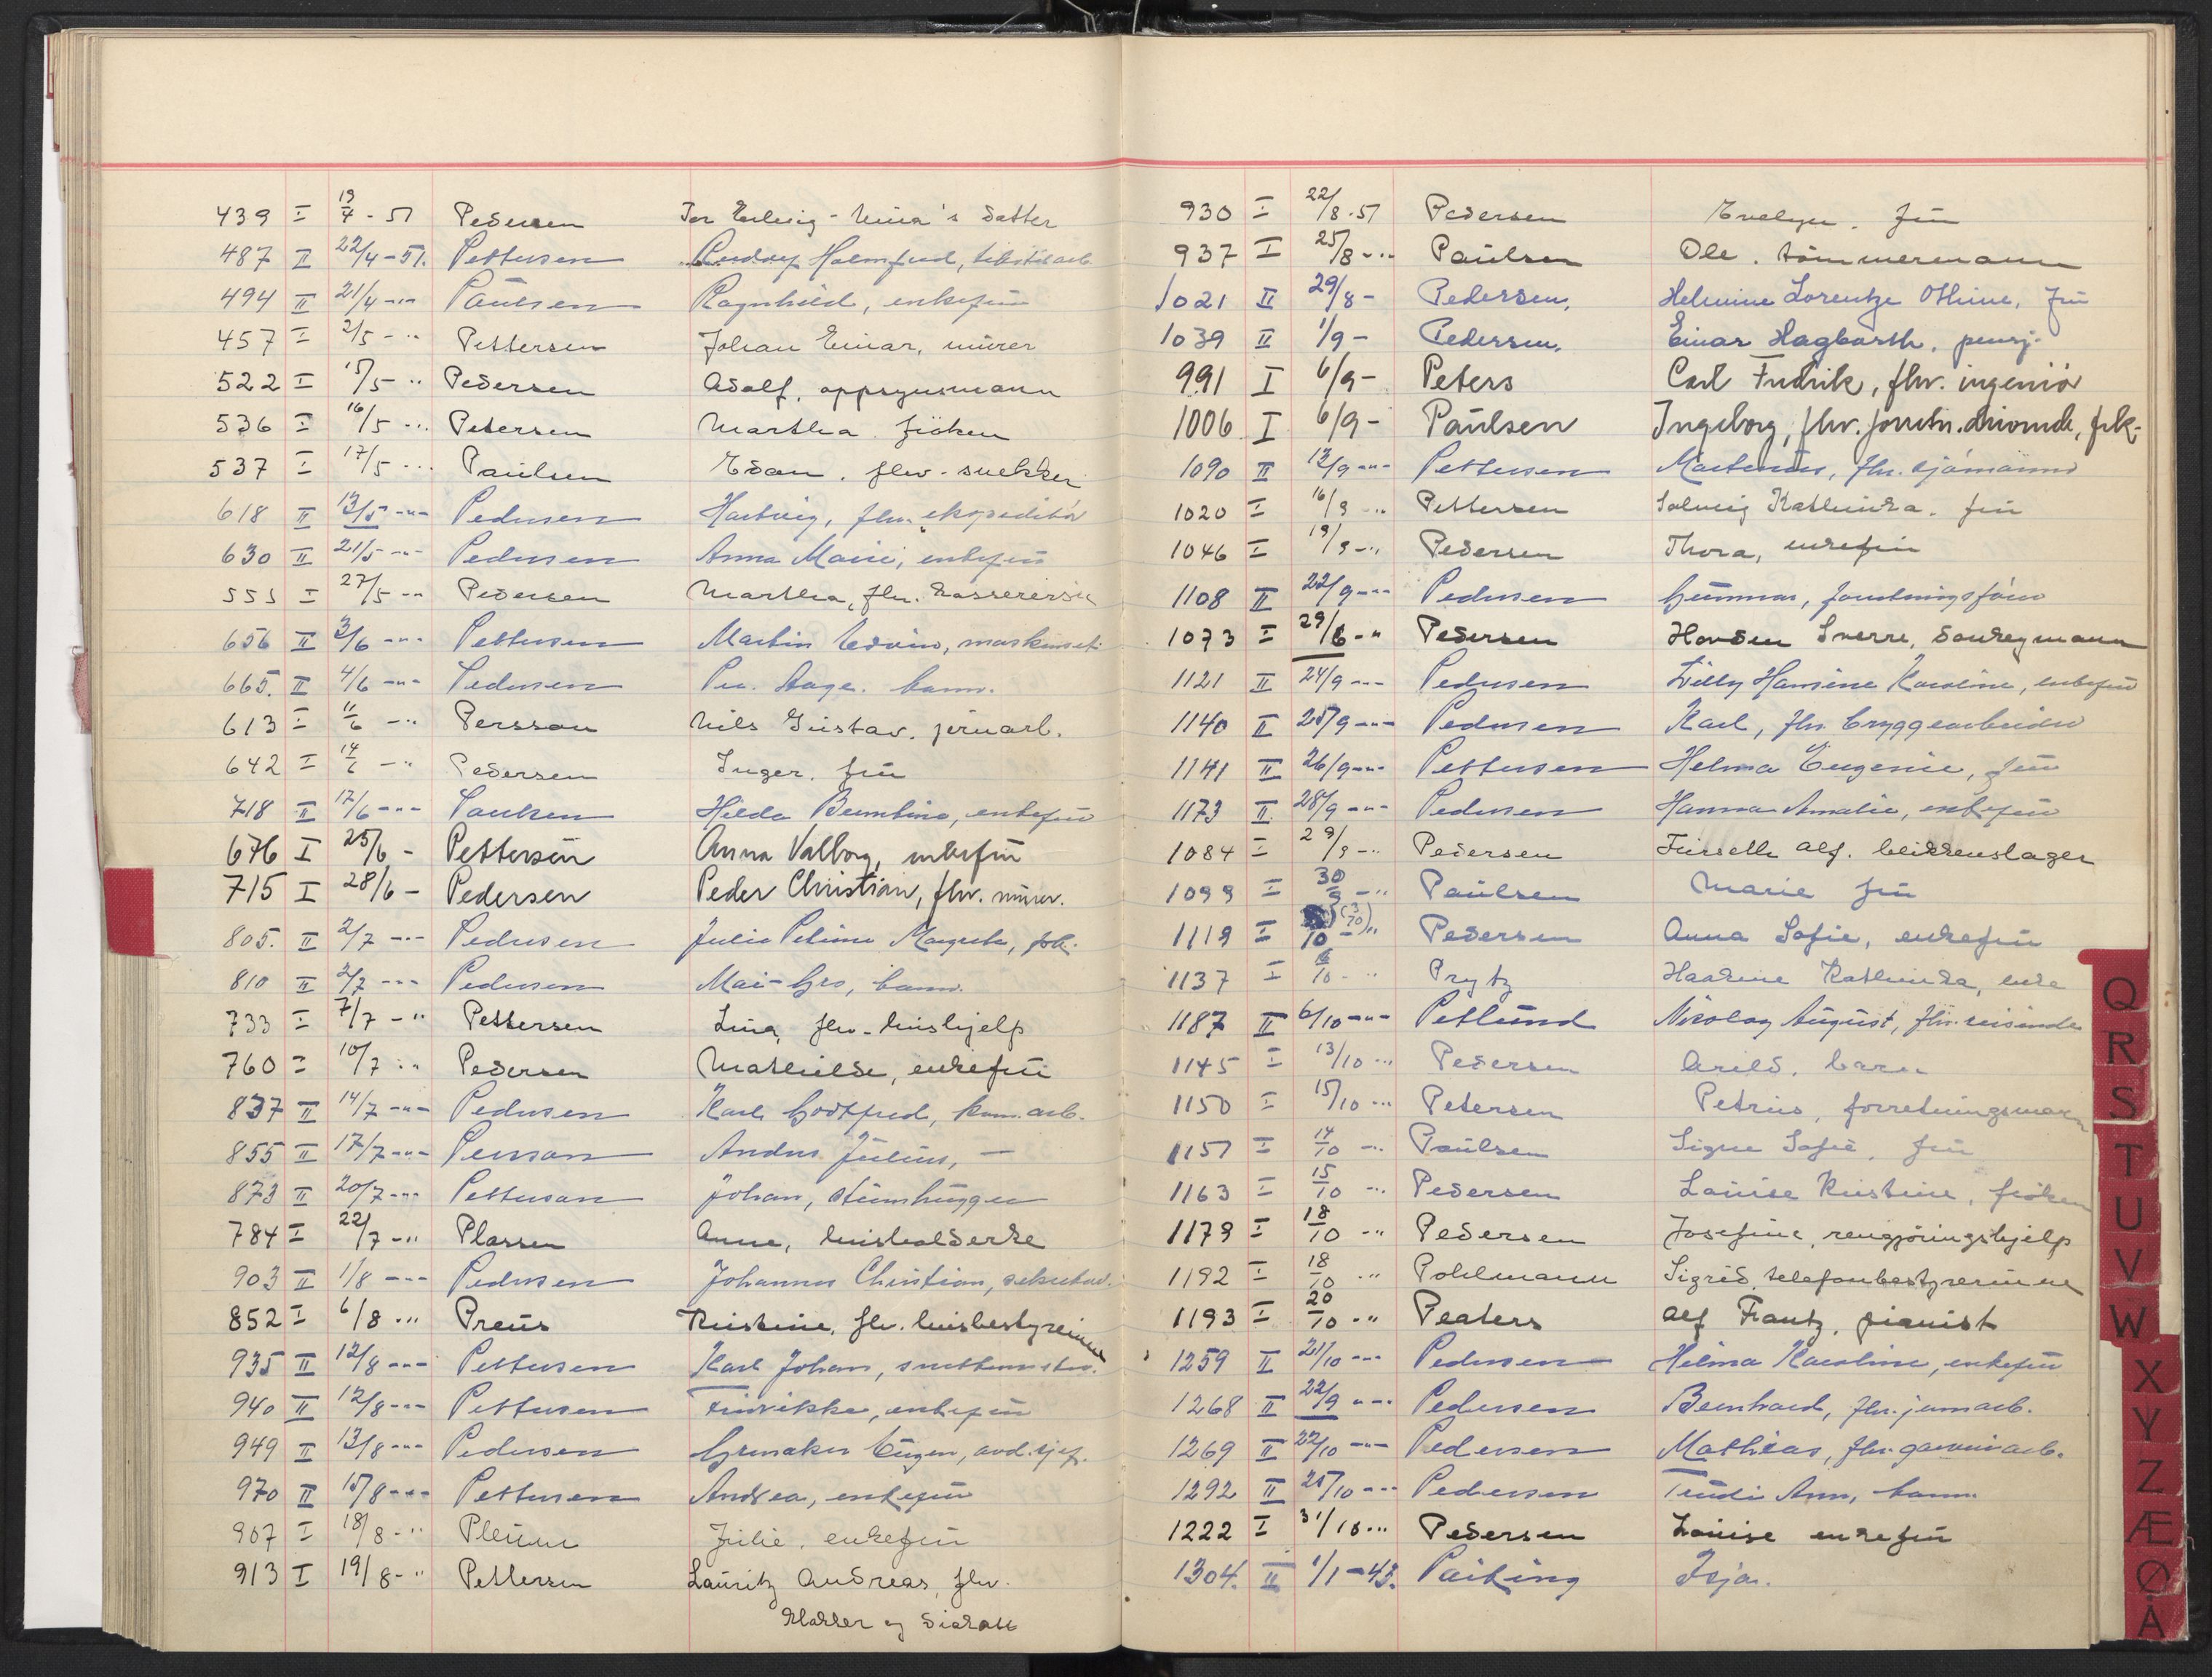 439 I 19/4 - 51 Pedersen Tor Erling - Nina's datter
487 II 22/4 - 51. Pettersen Holmfred, tekstilarb.
494 II 21/4 -"- Paulsen Ragnhild, enkefrü
457 I 2/5 - " Pettersen Johan Einar, mürer
522 I 15/5 " Pedersen Adolf, oppsynsmann
536 I 16/5 - " Petersen Martha fröken
537 I 17/5 - " Paulsen Edan. fhv. snekker
618 II 13/5 -"- Pedersen Hartvig, fhv. ekspeditör
630 II 21/5 -"- Pedersen Anna Marie, enkefrü
555 I 27/5 - " Pedersen Martha, fhv. kassererske
656 II 3/6 -"- Pettersen Martin Edvin, maskinset.
665. II 4/6 -"- Pedersen Per Aage. barn.
613 I 11/6 - " Persson Nils Güstav. jernarb.
642 I 14/6 - " Pedersen Inger. frü
718 II 17/6 -"- Paulsen Hilda Berntine, enkefrü
676 I 25/6 - Pettersen Anna Valborg, enkefrü
715 I 28/6 - Pedersen Peder Christian, fhv. mürer.
805. II 2/7 -"- Pedersen Julie Petrine Margrethe, frk.
810 II 2/7 -"- Pedersen Mai-Gro, barn.
733 I 7/7 - " Pettersen Lina, fhv. hüshjelp
760 I 10/7 " Pedersen Mathilde, enkefrü
837 II 14/7 -"- Pedersen Karl Godtfred, kom. arb.
855 II 17/7 -"- Persson Anders Julius, —
873 II 20/7 -"- Petterson Johan, stenhügger
784 I 22/7 - " Plassen Anna, hüsholderske
903 II 1/8 -"- Pedersen Johannes Christian, sekretær.
852 I 6/8 " Preüs Kristine, fhv. hüsbestyrerinne
935 II 12/8 -"- Pettersen Karl Johan,
940 II 12/8 -"- Pettersen Fredrikke, enkefrü
949 II 13/8 -"- Pedersen Grenaker Eugen, avd. sjef.
970 II 15/8 -"- Pettersen Andrea, enkefrü
907 I 18/8 - " Julie, enkefrü
913 I 19/8 - " Pettersen Lauritz Andreas, fhv.
klokker og diakon
930 I 22/8 - 51 Pedersen Evelyn. frü
937 I 25/8 - " Paülsen Ole. tömmermann
1021 II 29/8 - Pedersen, Helmine Lorentze Othine, frü
1039 II 1/9 - Pedersen, Einar Hagbarth, pensj.
991 I 6/9 - Peters Carl Fredrik, fhv. ingeniör
1006 I 6/9 - Paülsen Ingeborg, fhv. forretn. drivende, frk.
1090 II 12/9 -"- Pettersen Martinius, fhv. sjömann
1020 I 16/9 " Pettersen Solveig Kathinka. frü
1046 I 19/9 - " Pedersen Thora, enkefrü
1108 II 22/9 -"- Pedersen Gunnar, forretningsförer
1073 I 29/8 - " Pedersen Hovden Sverre, Donkeymann
1121 II 24/9 -"- Pedersen Lilly Hansine Karoline, enkefrü
1140 II 25/9 -"- Pedersen Karl, fhv. bryggearbeider
1141 II 26/9 -"- Pettersen Helma Eugenie, frü
1173 II 28/9 -"- Pedersen Hanna Amalie, enkefrü
1084 I 29/9 - " Pedersen Fürseth Alf. blikkenslager
1099 I 30/9 - " Paülsen Marie frü
1119 I (3/10) 10 - " Pedersen Anna Sofie, enkefrü
1137 I 6/10 - " Prytz Haakine Kathinka, enke
1187 II 6/10 -"- Petlünd Nicolay August, fhv. reisende
1145 I 13/10 " Pedersen Arild. barn
1150 I 15/10 " Petersen Petrüs, forretningsmann
1151 I 14/10 - " Paülsen Signe Sofie, frü
1163 I 15/10 - " Pedersen Louise Kristine, fröken
1179 I 18/10 - " Pedersen Josefine, rengjöringshjelp
1192 I 18/10 " Pohlmann Sigrid telefonbestyrerinne
1193 I 20/10 " Peaters Alf Frantz, pianist
1259 II 21/10 -"- Pedersen Helma Karoline, enkefrü
1268 II 22/9 -"- Pedersen Bernhard, fhv. jernarb.
1269 II 22/10 -"- Pedersen Mathias, fhv. garveriarb.
1292 II 25/10 -"- Pedersen Trüdi Ann, barn.
1222 I 31/10 " Pedersen Louise enkefrü
1304. II 1/1 - 43. Paiking Isja.
Q
R
S
T
U
V
W
X
Y
Z
Æ
Ø
Å